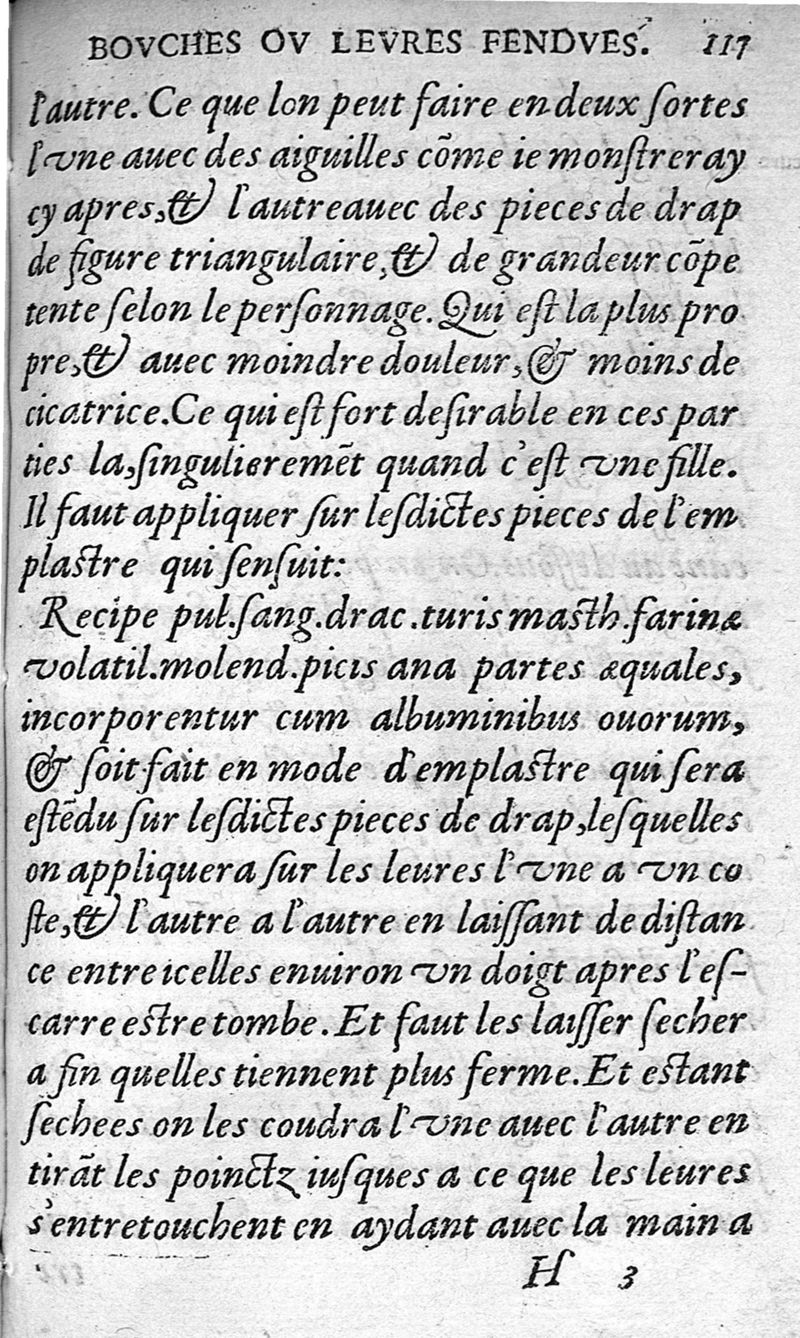 BOVCHES OV LEVRES FENDVES. 117
l'autre. Ce que lon peut faire en deux ſortes
l'vne auec des aiguilles cõme ie monſtreray
cy apres, & l'autre auec des pieces de drap
de figure triangulaire, & de grandeur cõpe
tente ſelon le perſonnage. Qui eſt la plus pro
pre, & auec moindre douleur, & moins de
cicatrice. Ce qui eſt fort deſirable en ces par
ties la, ſingulieremẽt quand c'eſt vne fille.
Il faut appliquer ſur leſdictes pieces de l'em
plaſtre qui ſenſuit:
Recipe pul. ſang. drac. turis maſth. farinæ
volatil. molend. picis ana partes æquales,
incorporentur cum albuminibus ouorum,
& ſoit fait en mode d'emplaſtre qui ſera
eſtẽdu ſur leſdictes pieces de drap, leſquelles
on appliquera ſur les leures l'vne a vn co
ſte, & l'autre a l'autre en laiſſant de diſtan
ce entre icelles enuiron vn doigt apres l'eſ-
carre eſtre tombe. Et faut les laiſſer ſecher
a fin quelles tiennent plus ferme. Et eſtant
ſechees on les coudra l'vne auec l'autre en
tirãt les poinctz iuſques a ce que les leures
s'entretouchent en aydant auec la main a
H 3